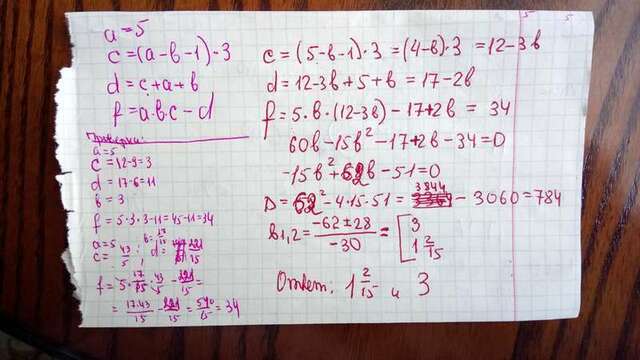 a=5
c=(a-в-1)·3
d=c+a+в
f=a·в·c-d
Проверка:
a=5
c=12-9=3
d=17-6=11
в=3
f=5·3·3-11=45-11=34
a=5 в=17/15
c=43/5; d=221/15
f=5·17/15·43/5-221/15=
=17·43/15-221/15=510/15=34
c=(5-в-1)·3=(4-в)·3=12-3в
d=12-3в+5+в=17-2в
f=5·в·(12-3в)-17+2в=34
60в-15в²-17+2в-34=0
-15в²+62в-51=0
D=62²-4·15·51=3844-3060=784
в1,2=-62±28/-30=[3
1 2/15
Ответ: 1 2/15 и 3